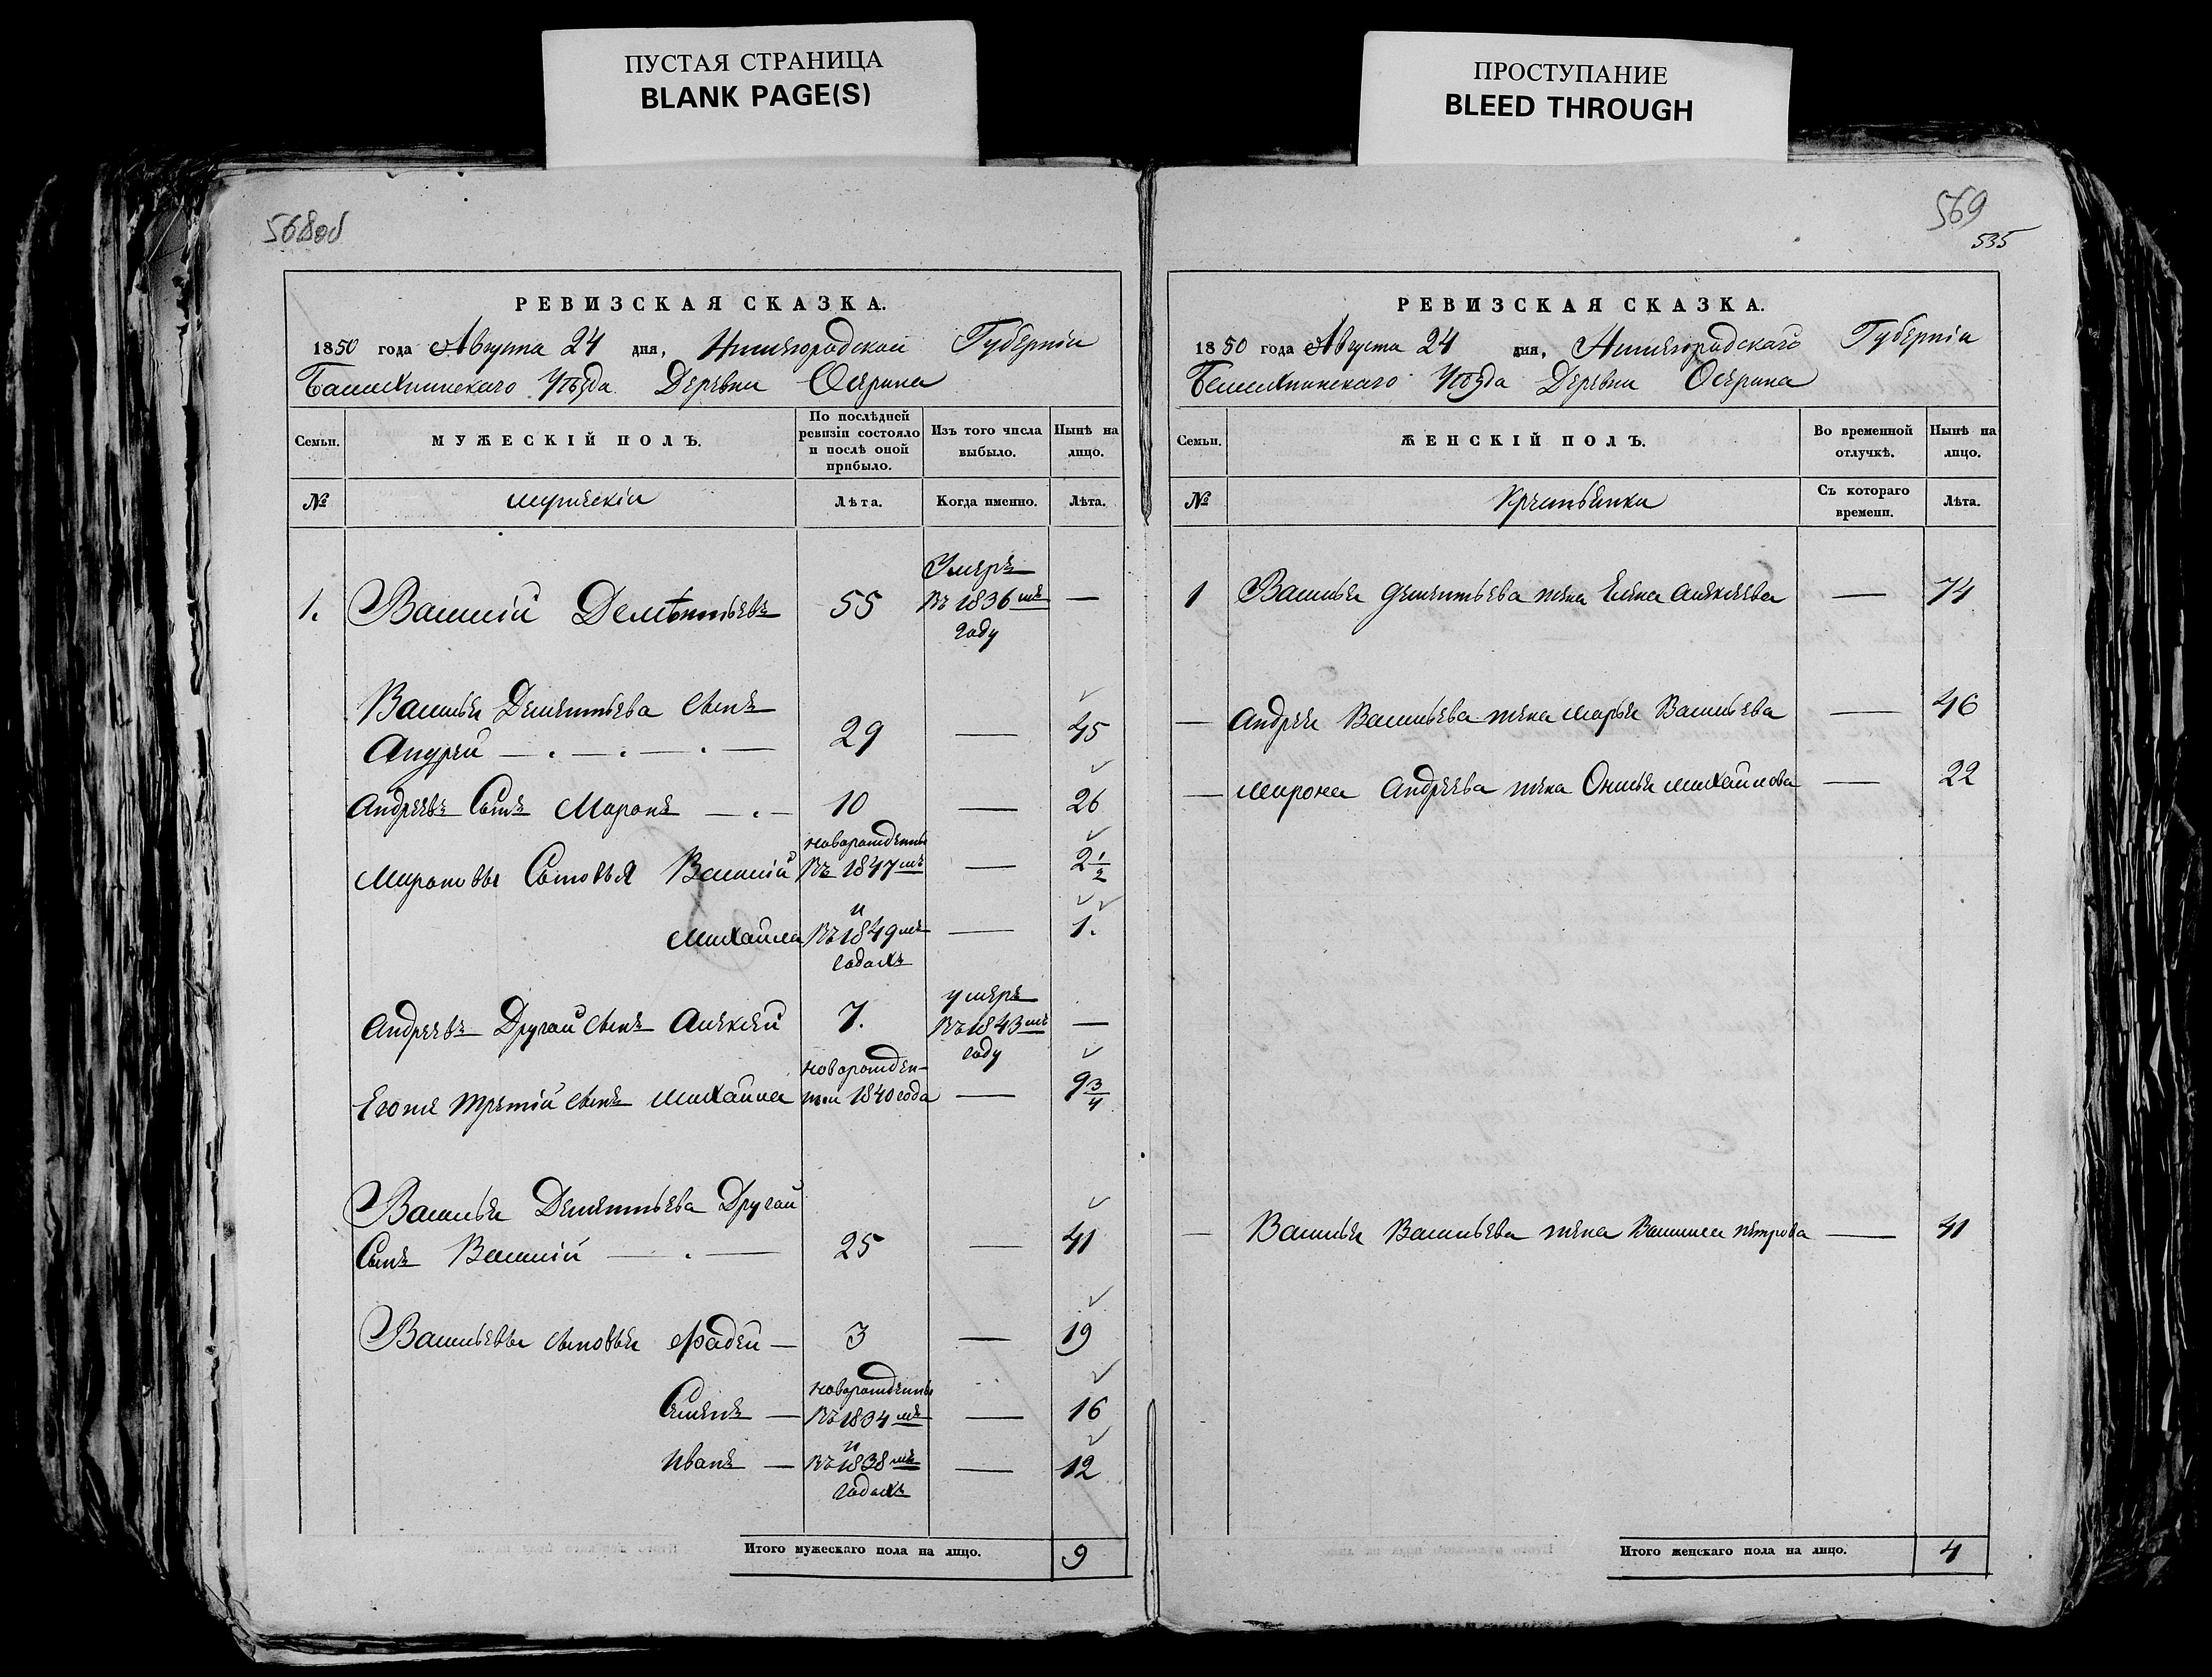 ПУСТАЯ СТРАНИЦА
BLANK PAGE(S)
ПРОСТУПАНИЕ
BLEED THROUGH
568об
РЕВИЗСКАЯ СКАЗКА.
1850 года Августа 24 дня, Нижегородской Губерніи
Уѣзда Деревни
Семьи. МУЖЕСКІЙ ПОЛЪ. По послѣдней ревизіи состояло и послѣ оной прибыло. Изъ того числа выбыло. Нынѣ на лицо.
№ Лѣта. Когда именно. Лѣта.
1. Василій Дементьевъ 55 Умеръ въ 1836мъ году —
Василья Дементьева Сынъ
Андрей 29 — 45
Андреевъ Сынъ Миронъ 10 — 26
Мироновы Сыновья Василій новорожденны въ 1847мъ — 2 1/2
Михайла и въ 1849мъ годахъ — 1.
Андреевъ Другой сынъ Алексей 7. умеръ въ 1843мъ году —
Егоже третій сынъ Михайла новорожденной 1840 года — 9 3/4
Василья Дементьева Другой
Сынъ Василій 25 — 41
Васильевы сыновья Фадей — 3 — 19
Семенъ — новорожденны въ 1834мъ — 16
Иванъ — и въ 1838мъ годахъ — 12
Итого мужескаго пола на лицо. 9
569
535
РЕВИЗСКАЯ СКАЗКА.
1850 года Августа 24 дня, Нижегородскаго Губерніи
Уѣзда Деревни
Семьи. ЖЕНСКІЙ ПОЛЪ. Во временной отлучкѣ. Нынѣ на лицо.
№ Съ котораго времени. Лѣта.
1 Василья дементьева жена Елена алексеева — 74
— Андрея Васильева жена марья Васильева — 46
— мирона Андреева жена михайлова — 22
— Василья Васильева жена петрова — 41
Итого женскаго пола на лицо. 4